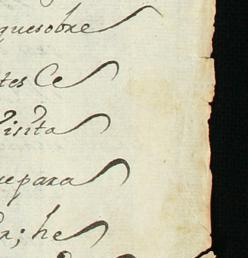 quesobre
tes Ce
Visita
uepara
a; he